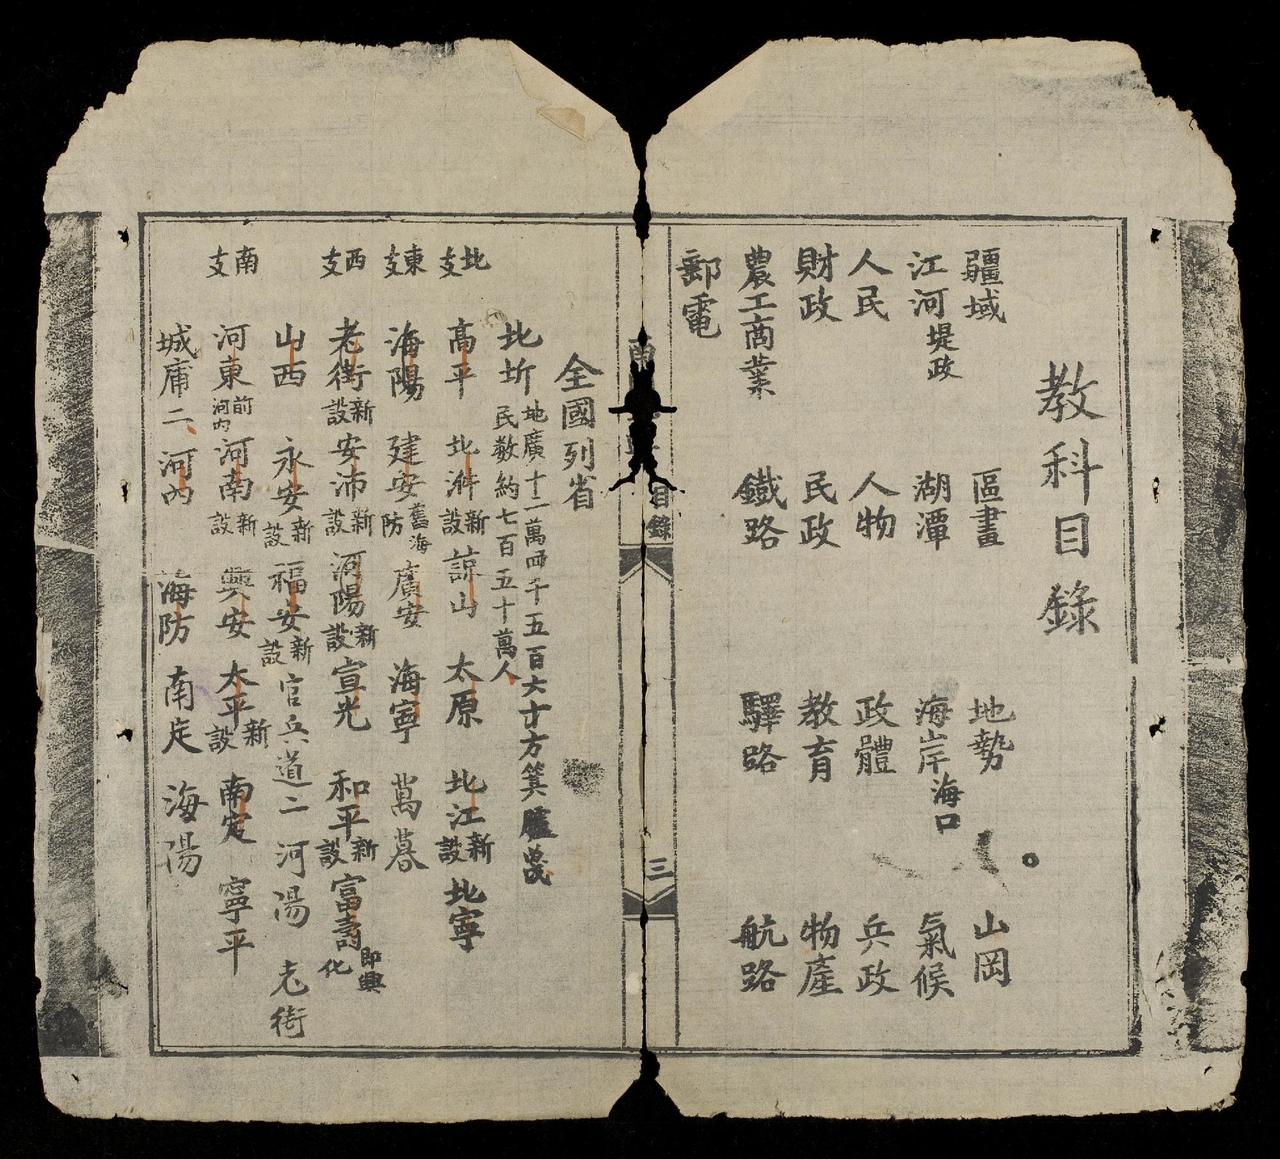 教科目錄
疆域 區畫 地勢 山岡
江河堤政 湖潭 海岸海口 氣候
人民 人物 政體 兵政
財政 民政 教育 物產
農工商業 鐵路 驛路 航路
郵電
目錄 三
全國列省
北圻 地廣十二萬四千五百六十方箕
民数約七百五十萬人
北支 高平 北𣴓新設 諒山 太原 北江新設 北寧
東支 海陽 建安舊海防 廣安 海寧 萬暮
西支 老街新設 安沛新設 河陽新設 宣光 和平新設 富壽即興化
山西 永安新設 福安新設 官兵道二 河陽 老街
南支 河東前河内 河南新設 興安 太平新設 南定 寧平
城庯二 河内 海防 南定 海陽